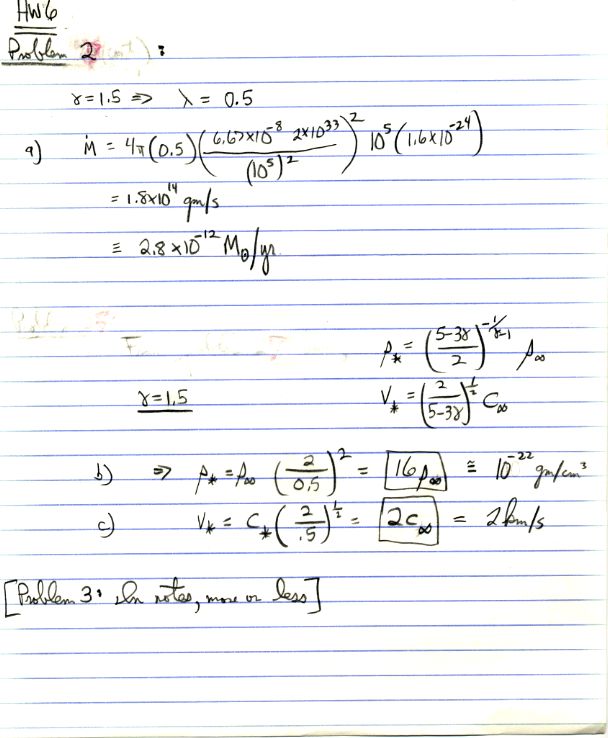 HW6
Problem 2 :
γ=1.5 ⇒ λ = 0.5
a) Ṁ = 4π(0.5)(6.67×10⁻⁸ 2×10³³/(10⁵)²)² 10⁵(1.6×10⁻²⁴)
= 1.8×10¹⁴ gm/s
≡ 2.8×10⁻¹² M⊙/yr
ρ* = ((5-3γ)/2)^(-1/(γ-1)) ρ∞
γ=1.5
V* = (2/(5-3γ))^(1/2) C∞
b) ⇒ ρ* = ρ∞ (2/0.5)² = 16ρ∞ ≅ 10⁻²² gm/cm³
c) V* = C* (2/.5)^(1/2) = 2c∞ = 2km/s
[Problem 3: In notes, more or less]